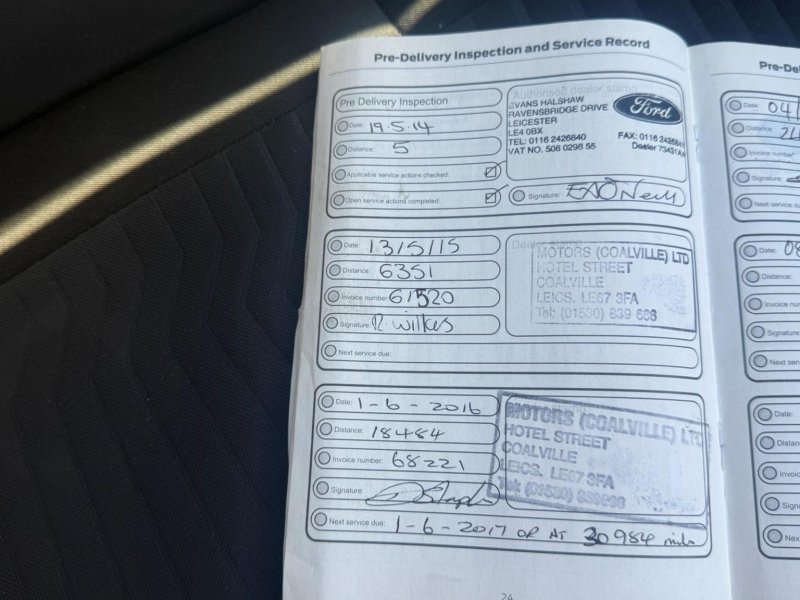 Pre-Delivery Inspection and Service Record
Pre Delivery Inspection
Date: 19.5.14
Distance: 5
Applicable service actions checked:
Open service actions completed:
Authorised dealer stamp
EVANS HALSHAW
RAVENSBRIDGE DRIVE
LEICESTER
LE4 0BX
TEL: 0116 2426840
VAT NO. 508 0298 55
Ford
FAX: 0116 242684
Dealer 73431AA
Signature:
Date: 13/5/15
Distance: 6351
Invoice number: 61520
Signature: R. Wilkes
Next service due:
Dealer stamp
MOTORS (COALVILLE) LTD
HOTEL STREET
COALVILLE
LEICS. LE67 3FA
Tel: (01530) 839 666
Date: 1-6-2016
Distance: 18484
Invoice number: 68221
Signature:
Next service due: 1-6-2017 OR AT 30984 miles
MOTORS (COALVILLE) LT
HOTEL STREET
COALVILLE
LEICS. LE67 3FA
24
Pre-Del
Date: 04/
Distance: 24
Invoice number
Signature:
Next service du
Date: 08
Distance:
Invoice num
Signature
Next serv
Date:
Distan
Invoic
Signa
Nex